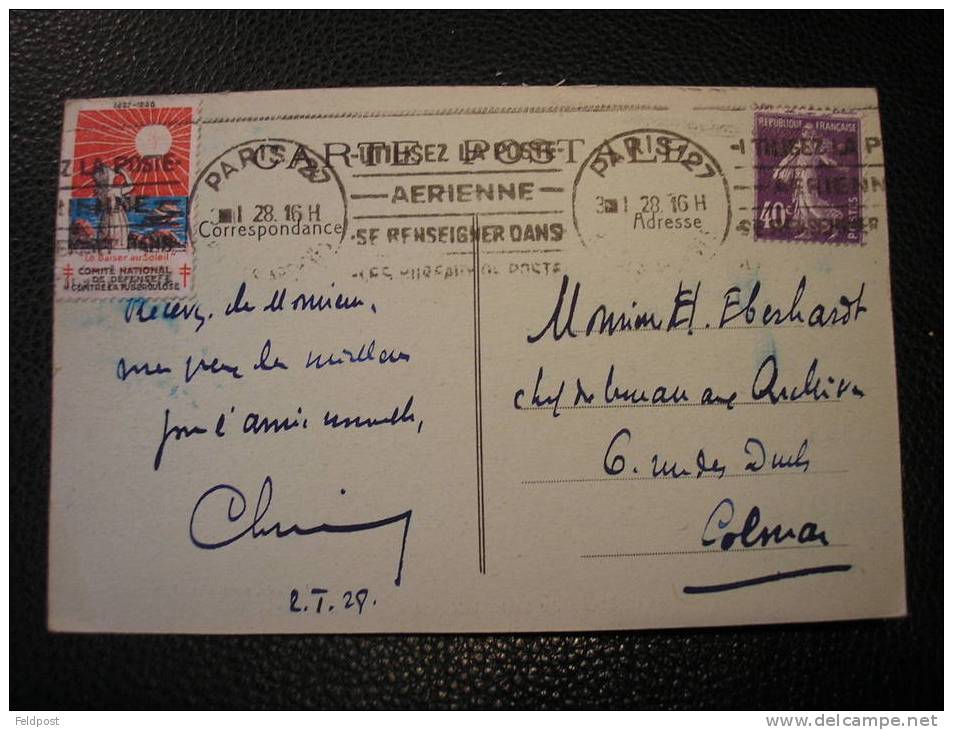 1927-1928
"Le Baiser au Soleil"
COMITÉ NATIONAL
DE DÉFENSE
CONTRE LA TUBERCULOSE
Z LA POSTE
CARTE POSTALE
PARIS 127
I 28. 16 H
UTILISEZ LA POSTE
AERIENNE
SE RENSEIGNER DANS
LES BUREAUX DE POSTE
PARIS 127
I 28. 16 H
UTILISEZ LA P
AERIENN
REPUBLIQUE FRANÇAISE
40c
POSTES
Correspondance
Adresse
Recevez, cher Monsieur,
mes vœux les meilleurs
pour l'année nouvelle,
2.I.28.
Monsieur E. Eberhardt
chef de bureau aux Archives
6. rue des
Colmar
Feldpost
www.delcampe.net